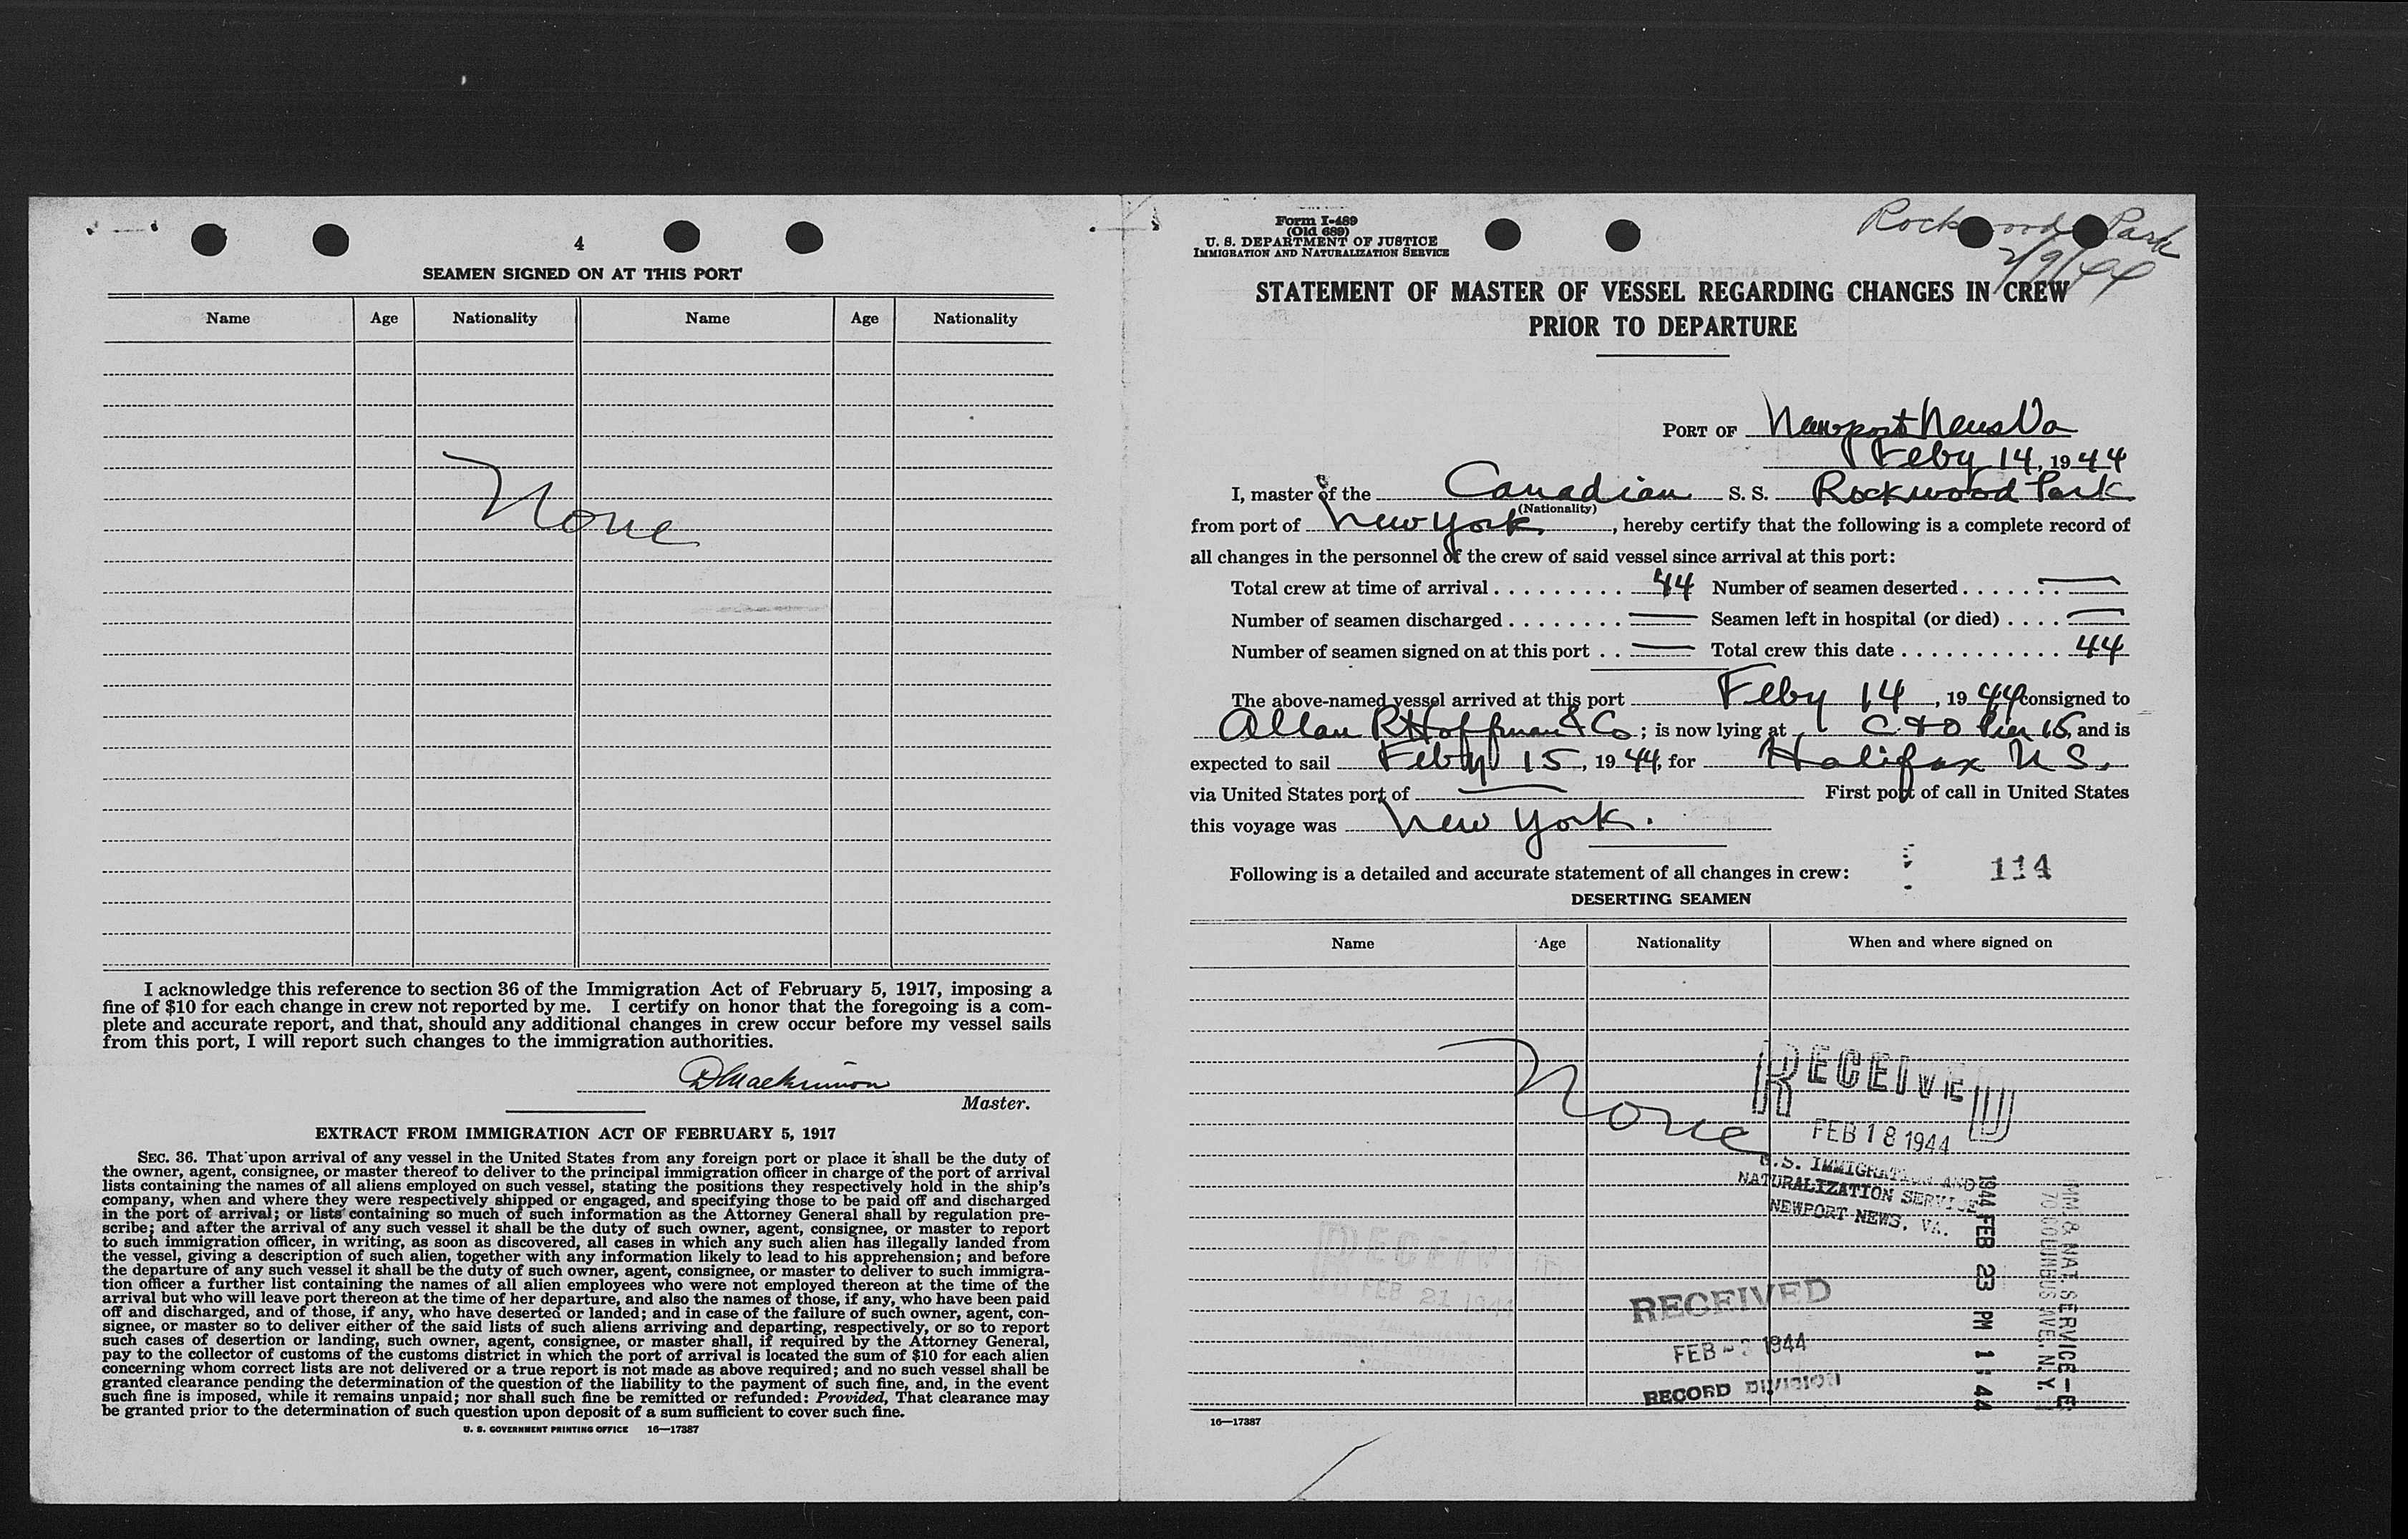 4
SEAMEN SIGNED ON AT THIS PORT
Name Age Nationality Name Age Nationality
None
I acknowledge this reference to section 36 of the Immigration Act of February 5, 1917, imposing a
fine of $10 for each change in crew not reported by me. I certify on honor that the foregoing is a com-
plete and accurate report, and that, should any additional changes in crew occur before my vessel sails
from this port, I will report such changes to the immigration authorities.
Master.
EXTRACT FROM IMMIGRATION ACT OF FEBRUARY 5, 1917
SEC. 36. That upon arrival of any vessel in the United States from any foreign port or place it shall be the duty of
the owner, agent, consignee, or master thereof to deliver to the principal immigration officer in charge of the port of arrival
lists containing the names of all aliens employed on such vessel, stating the positions they respectively hold in the ship's
company, when and where they were respectively shipped or engaged, and specifying those to be paid off and discharged
in the port of arrival; or lists containing so much of such information as the Attorney General shall by regulation pre-
scribe; and after the arrival of any such vessel it shall be the duty of such owner, agent, consignee, or master to report
to such immigration officer, in writing, as soon as discovered, all cases in which any such alien has illegally landed from
the vessel, giving a description of such alien, together with any information likely to lead to his apprehension; and before
the departure of any such vessel it shall be the duty of such owner, agent, consignee, or master to deliver to such immigra-
tion officer a further list containing the names of all alien employees who were not employed thereon at the time of the
arrival but who will leave port thereon at the time of her departure, and also the names of those, if any, who have been paid
off and discharged, and of those, if any, who have deserted or landed; and in case of the failure of such owner, agent, con-
signee, or master so to deliver either of the said lists of such aliens arriving and departing, respectively, or so to report
such cases of desertion or landing, such owner, agent, consignee, or master shall, if required by the Attorney General,
pay to the collector of customs of the customs district in which the port of arrival is located the sum of $10 for each alien
concerning whom correct lists are not delivered or a true report is not made as above required; and no such vessel shall be
granted clearance pending the determination of the question of the liability to the payment of such fine, and, in the event
such fine is imposed, while it remains unpaid; nor shall such fine be remitted or refunded: Provided, That clearance may
be granted prior to the determination of such question upon deposit of a sum sufficient to cover such fine.
U. S. GOVERNMENT PRINTING OFFICE 16—17387
Form I-489
(Old 689)
U. S. DEPARTMENT OF JUSTICE
IMMIGRATION AND NATURALIZATION SERVICE
Rockwood Park
2/9/44
STATEMENT OF MASTER OF VESSEL REGARDING CHANGES IN CREW
PRIOR TO DEPARTURE
PORT OF Newport News Va
Feby 14, 1944
I, master of the Canadian S. S. Rockwood Park
(Nationality)
from port of New York, hereby certify that the following is a complete record of
all changes in the personnel of the crew of said vessel since arrival at this port:
Total crew at time of arrival . . . . . . . . . 44 Number of seamen deserted . . . . . . . —
Number of seamen discharged . . . . . . . . — Seamen left in hospital (or died) . . . . —
Number of seamen signed on at this port . . — Total crew this date . . . . . . . . . . . . 44
The above-named vessel arrived at this port Feby 14, 1944 consigned to
Allan R Hoffman & Co; is now lying at C & O Pier 15, and is
expected to sail Feby 15, 1944, for Halifax N S.
via United States port of — First port of call in United States
this voyage was New York.
Following is a detailed and accurate statement of all changes in crew:
114
DESERTING SEAMEN
Name Age Nationality When and where signed on
None
RECEIVED
FEB 18 1944
U.S. IMMIGRATION AND
NATURALIZATION SERVICE
NEWPORT NEWS, VA.
FEB 21 1944
RECEIVED
1944
RECORD DIVISION
1944 FEB 23 PM 1 44
IMM. & NAT. SERVICE-E
70 COLUMBUS AVE. N.Y.
16—17387